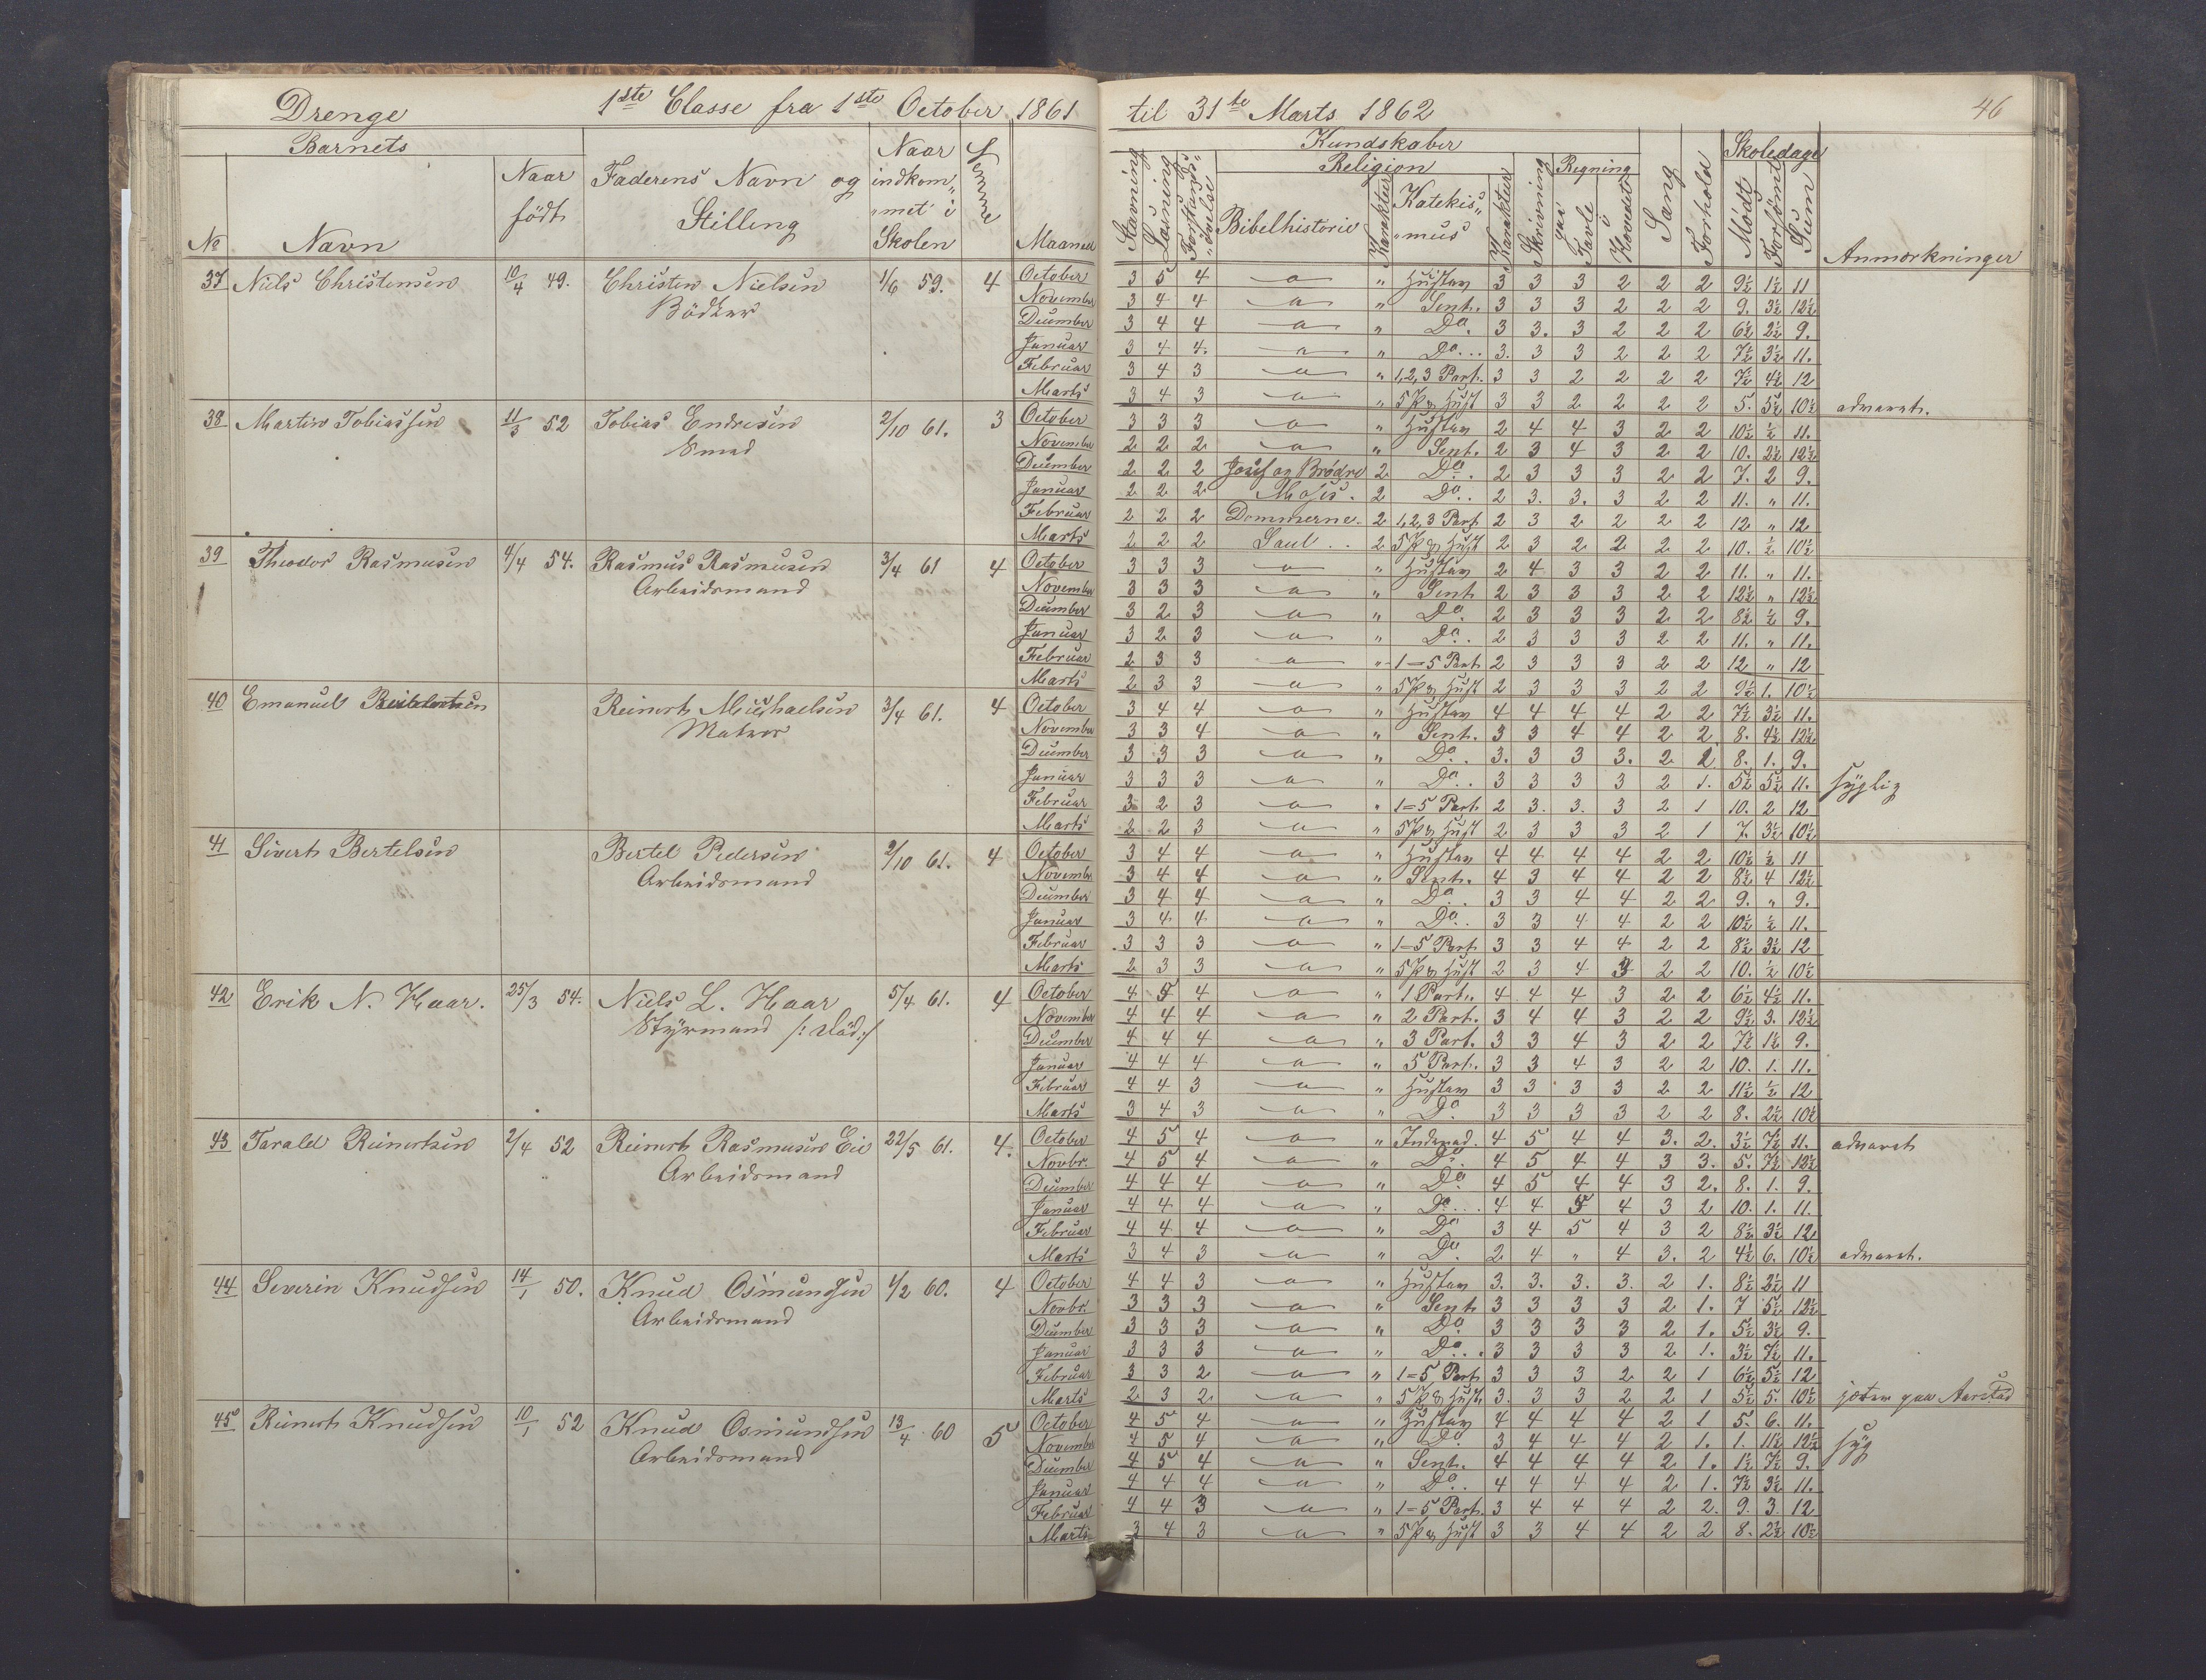 Drenge 1ste Classe fra 1ste October 1861 til 31te Marts 1862 46
Barnets Kundskaber
Religion Regning Skoledage
No Navn Naar født Faderens Navn og Stilling Naar indkom„ „met i Skolen Evne Maaned Stavning Læsning Bibelhistorie Karakter Katekis„ „mus Karakter Skrivning paa Tavle i Hovedet Sang Forhold Mødt Forsømt Sum Anmærkninger
37 Niels Christensen 10/4 49. Christen Nielsen 1/6 59. 4 October 3 5 4 „ 3 3 3 2 2 2 9½ 1½ 11
Bødker November 3 4 4 „ Sent. 3 3 3 2 2 2 9. 3½ 12½
December 3 4 4 „ Do. 3 3. 3 2 2 2 6½ 2½ 9.
Januar 3 4 4. „ Do... 3. 3 3 2 2 2 7½ 3½ 11.
Februar 3 4 3 „ 1,2,3 Part. 3 3 2 2 2 2 7½ 4½ 12
Marts 3 4 3 „ 3 3 2 2 2 2 5. 5½ 10½ advaret.
38 Martin Tobiassen 11/3 52 Tobias Endresen 2/10 61. 3 October 3 3 3 „ 2 4 4 3 2 2 10½ ½ 11.
Smed November 2 2 2 „ Sent. 2 3 4 3 2 2 10. 2½ 12½
December 2 2 2 Josef og Brødre 2 Do. 2 3 3 3 2 2 7. 2 9.
Januar 2 2 2 Moses. 2 Do.. 2 3. 3. 3 2 2 11. „ 11.
Februar 2 2 2 Dommerne. 2 1,2,3 Part 2 3 2 2 2 2 12 „ 12
Marts 2 2 2 Saul .. 2 2 3 2 2 2 2 10. ½ 10½
39 Theodor Rasmusen 4/4 54. Rasmus Rasmusen 3/4 61 4 October 3 3 3 „ 2 4 3 3 2 2 11. „ 11.
Arbeidsmand November 3 3 3 „ Sent 2 3 3 3 2 2 12½ „ 12½
December 3 2 3 „ Do 2 3 3 3 2 2 8½ ½ 9.
Januar 3 2 3 „ Do. 2 3 3 3 2 2 11. „ 11.
Februar 2 3 3 „ 1=5 Part 2 3 3 3 2 2 12 „ 12
Marts 2 3 3 „ 2 3 3 3 2 2 9½ 1. 10½
40 Emanuel Reinert Michaelsen 3/4 61. 4 October 3 4 4 „ 4 4 4 4 2 2 7½ 3½ 11.
Matros November 3 3 4 „ Sent. 3 3 4 4 2 2 8. 4½ 12½
December 3 3 3 „ Do.. 3. 3 3 3. 2 2 8. 1. 9.
Januar 3 3 3 „ Do.. 3 3 3 3 2 1. 5½ 5½ 11. syglig
Februar 3 2 3 „ 1=5 Part. 2 3. 3. 3 2 1 10. 2 12
Marts 2 2 3 „ 2 3 3 3 2 1 7. 3½ 10½
41 Sivert Bertelsen Bertel Pedersen 2/10 61. 4 October 3 4 4 „ 4 4 4 4 2 2 10½ ½ 11
Arbeidsmand November 3 4 4 „ Sent. 4 3 4 4 2 2 8½ 4 12½
December 3 4 4 „ Do.. 3 3 4 4 2 2 9. „ 9.
Januar 3 4 4 „ Do.. 3 3 4 4 2 2 10½ ½ 11.
Februar 3 3 3 „ 1=5 Part. 3 3 4 4 2 2 8½ 3½ 12
Marts 2 3 3 „ 2 3 4 3 2 2 10. ½ 10½
42 Erik N. Haar. 25/3 54. Niels L. Haar 5/4 61. 4 October 4 5 4 „ 1 Part. 4 4 4 3 2 2 6½ 4½ 11.
Styrmand /: död :/ November 4 4 4 „ 2 Part. 3 4 4 3 2 2 9½ 3. 12½
December 4 4 4 „ 3 Part. 3 3 4 3 2 2 7½ 1½ 9.
Januar 4 4 4 „ 5 Part. 3 3 4 3 2 2 10. 1. 11.
Februar 4 4 3 „ 3 3 3 3 2 2 11½ ½ 12
Marts 3 4 3 „ Do 3 3 3 3 2 2 8. 2½ 10½
43 Tarald Reinertsen 2/4 52 Reinert Rasmusen Eie 22/5 61. 4. October 4 5 4 „ 4 5 4 4 3. 2. 3½ 7½ 11. advaret
Arbeidsmand Novbr. 4 5 4 „ Do. 4 5 4 4 3 3. 5. 7½ 12½
December 4 4 4 „ Do. 4 5 4 4 3 2. 8. 1. 9.
Januar 4 4 4 „ Do.... 4 4 5 4 3 2 10. 1. 11.
Februar 4 4 4 „ Do 3 4 5 4 3 2 8½ 3½ 12
Marts 3 4 3 „ Do. 2 4 „ 4 3. 2 4½ 6. 10½ advaret.
44 Severin Knudsen 14/1 50. Knud Osmundsen 1/2 60. 4 October 4 4 3 „ 3. 3. 3. 3. 2 1. 8½ 2½ 11
Arbeidsmand Novbr. 3 3 3 „ Sent 3 3 3 3 2 1. 7 5½ 12½
December 3 3 3 „ Do 3 3 3 3 2 1. 5½ 3½ 9.
Januar 3 3 3 „ Do... 3 3 3 3 2 1. 3½ 7½ 11.
Februar 3 3 2 „ 1=5 Part 3 3 3 2 2 1 6½ 5½ 12
Marts 2 3 2 „ 3. 3 3 2 2 1 5½ 5. 10½ jæter paa Aarstad
45 Reinert Knudsen 10/1 52 Knud Osmundsen 13/4 60 5 October 4 5 4 „ 4 4 4 4 2 1 5. 6. 11.
Arbeidsmand November 4 5 4 „ Do. 3 4 4 4 2 1. 1. 11½ 12½ syg
December 4 5 4 „ Sent. 4 4 4 4 2 1. 1½ 7½ 9.
Januar 4 4 4 „ Do.. 4 4 4 4 2 1. 7½ 3½ 11.
Februar 4 4 3 „ 1=5 Part. 3 4 4 4 2 2. 9. 3 12
Marts 3 4 3 „ 3 3 4 4 2 2 8. 2½ 10½